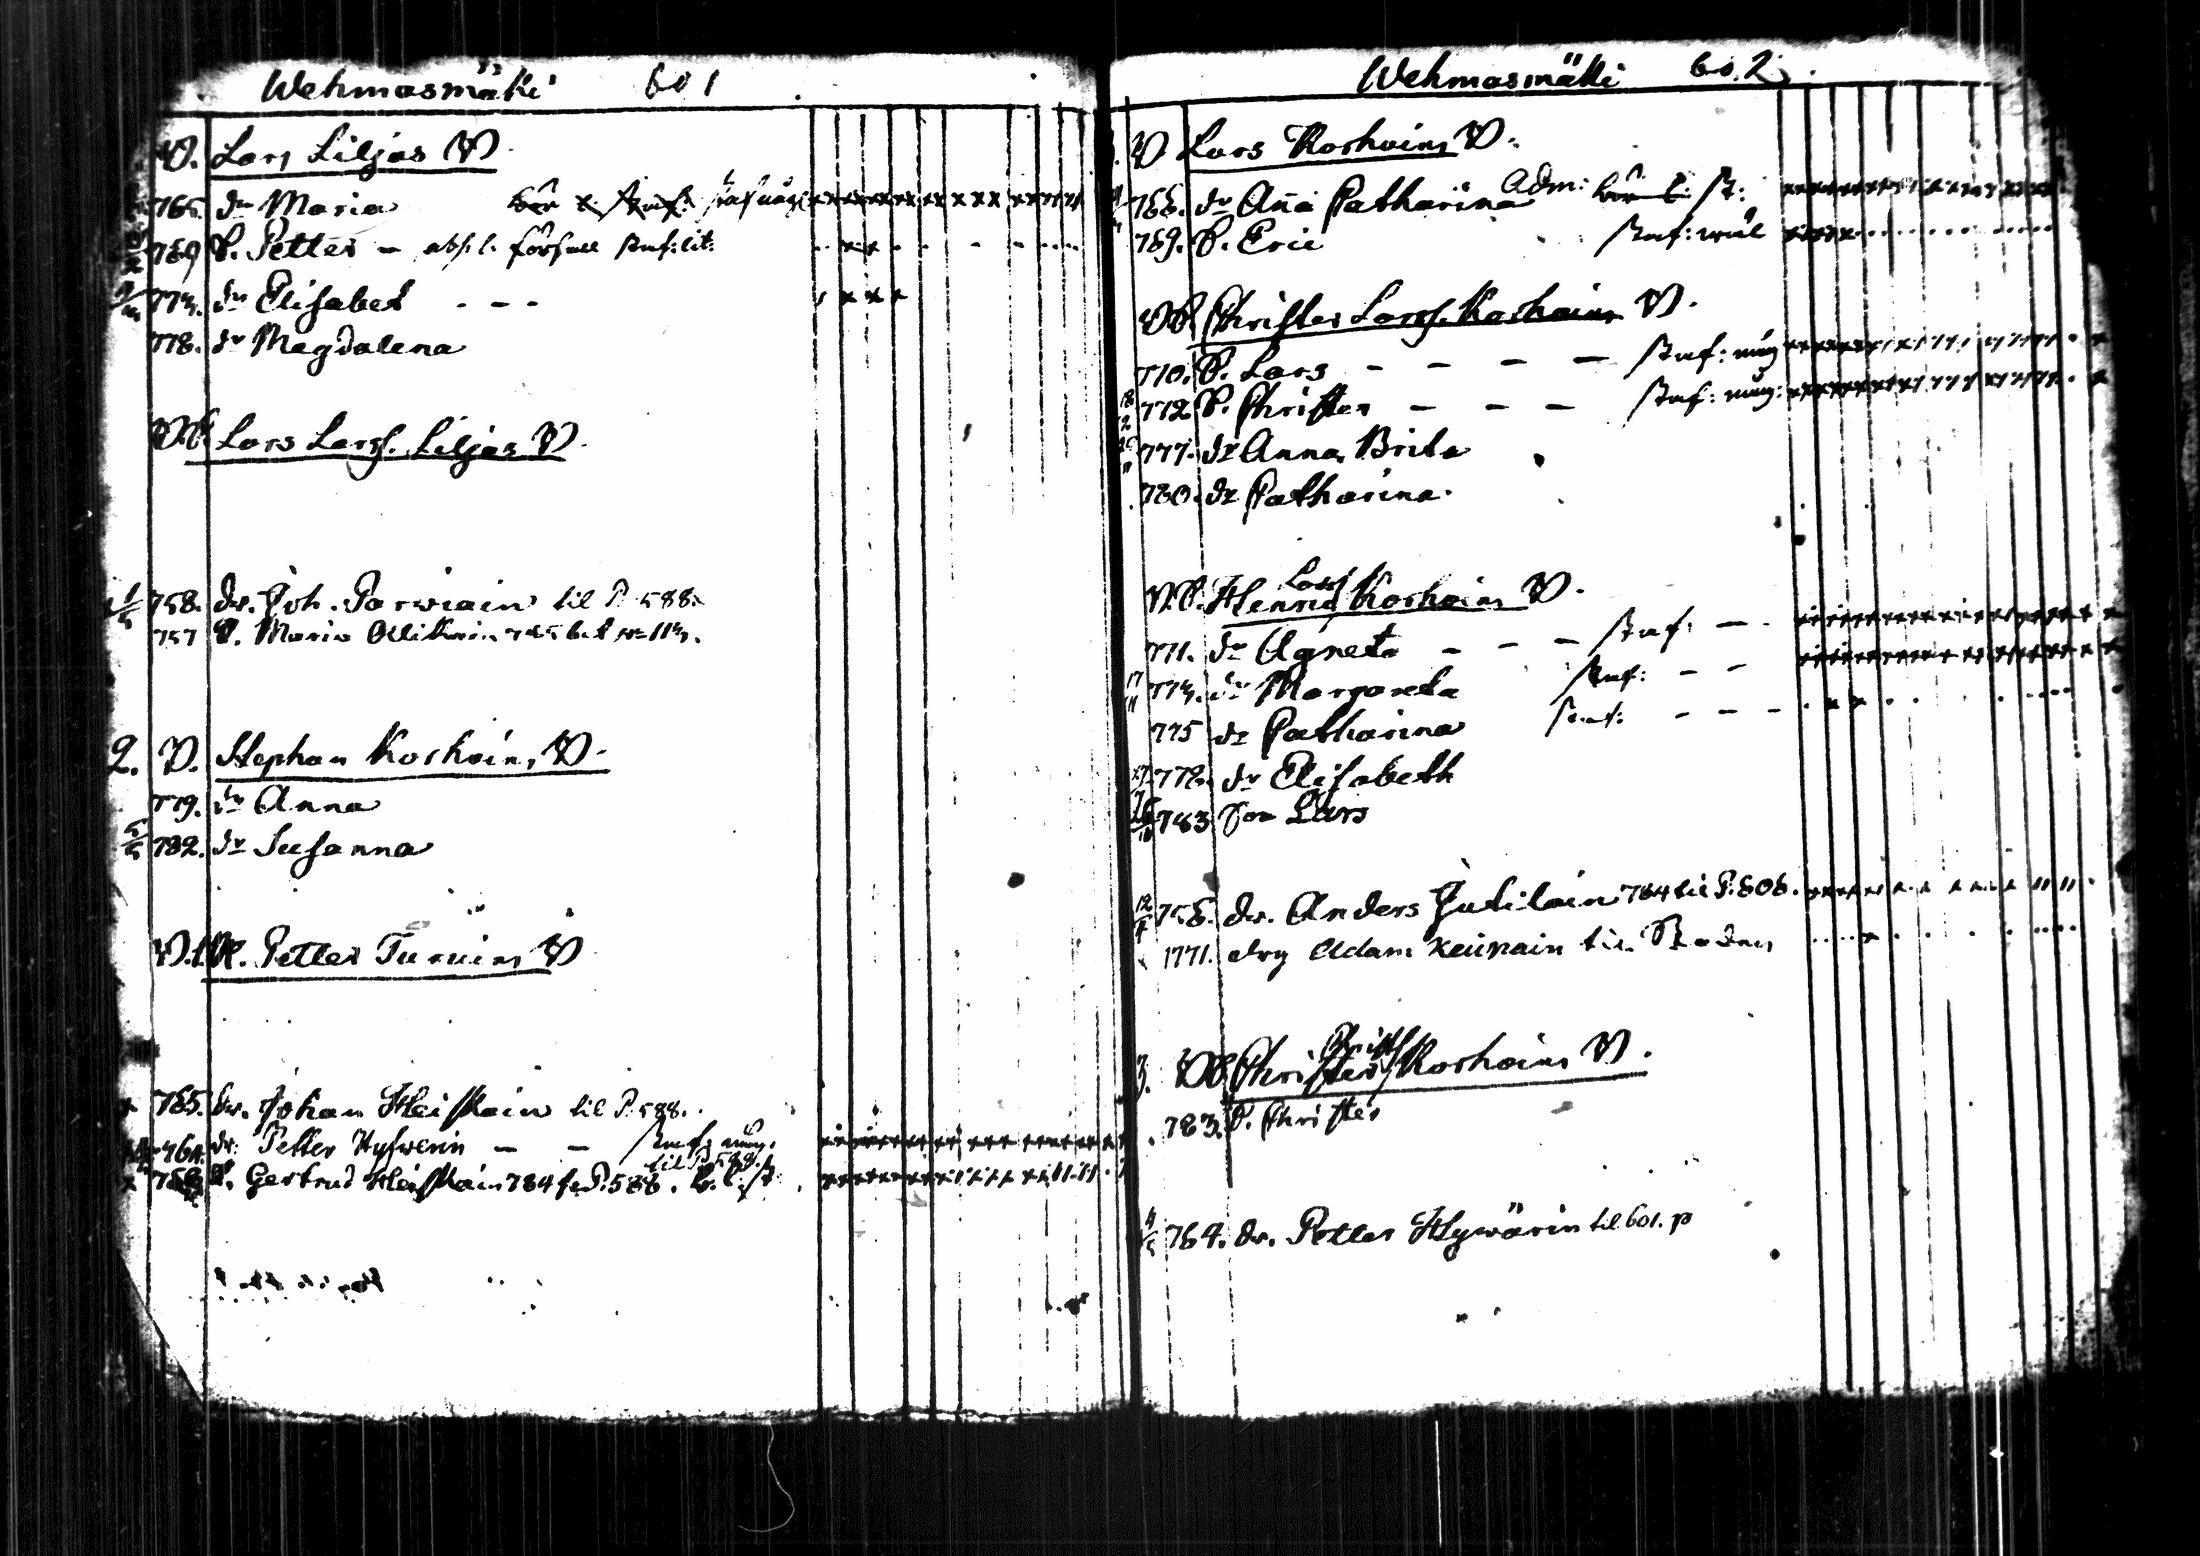 Wehmasmäki 601
V. Lars Liljas V.
766. dr Maria
769 S. Petter – abs. l. förfall staf: lit:
773. dr Elisabet - - -
778. dr Magdalena
V.S. Lars Larss. Liljas V.
758. dr. Joh. Parviain til P. 588.
757 P. Maria
2. V. Stephan Korhoin, V.
779. dr Anna
782. dr Susanna
Petter Turuin, V
765. dr. Johan Heiskain til P. 588.
764. dr: Petter Hyfwerin – – staf: nöij.
til P. 588.
P. Gertrud Heiskain 784 fr. P. 588.
Wehmasmäki 602.
V Lars Korhoin, V.
766. dr Aña Catharina Adm: st:
769. S. Eric staf: wäl
VS. Christer Larss. Korhoin V.
770. S. Lars – – – – staf: nöij
772 S. Christer – – – staf: nöij:
777. dr Anna Brita
780. dr Catharina.
V.S. Henric Larss Korhoin V.
771. dr Agneta – – – staf: – -
773. dr Margareta staf: – –
775 dr Catharina staf: – – –
778. dr Elisabeth
783 Son Lars
758. dr. Anders Jutilain 784 til P. 606.
1771. drg Adam Keinain til Staden
3. VS Christer Christ Korhoin V.
783. S. Christer
764. dr. Petter Hywärin til 601. p